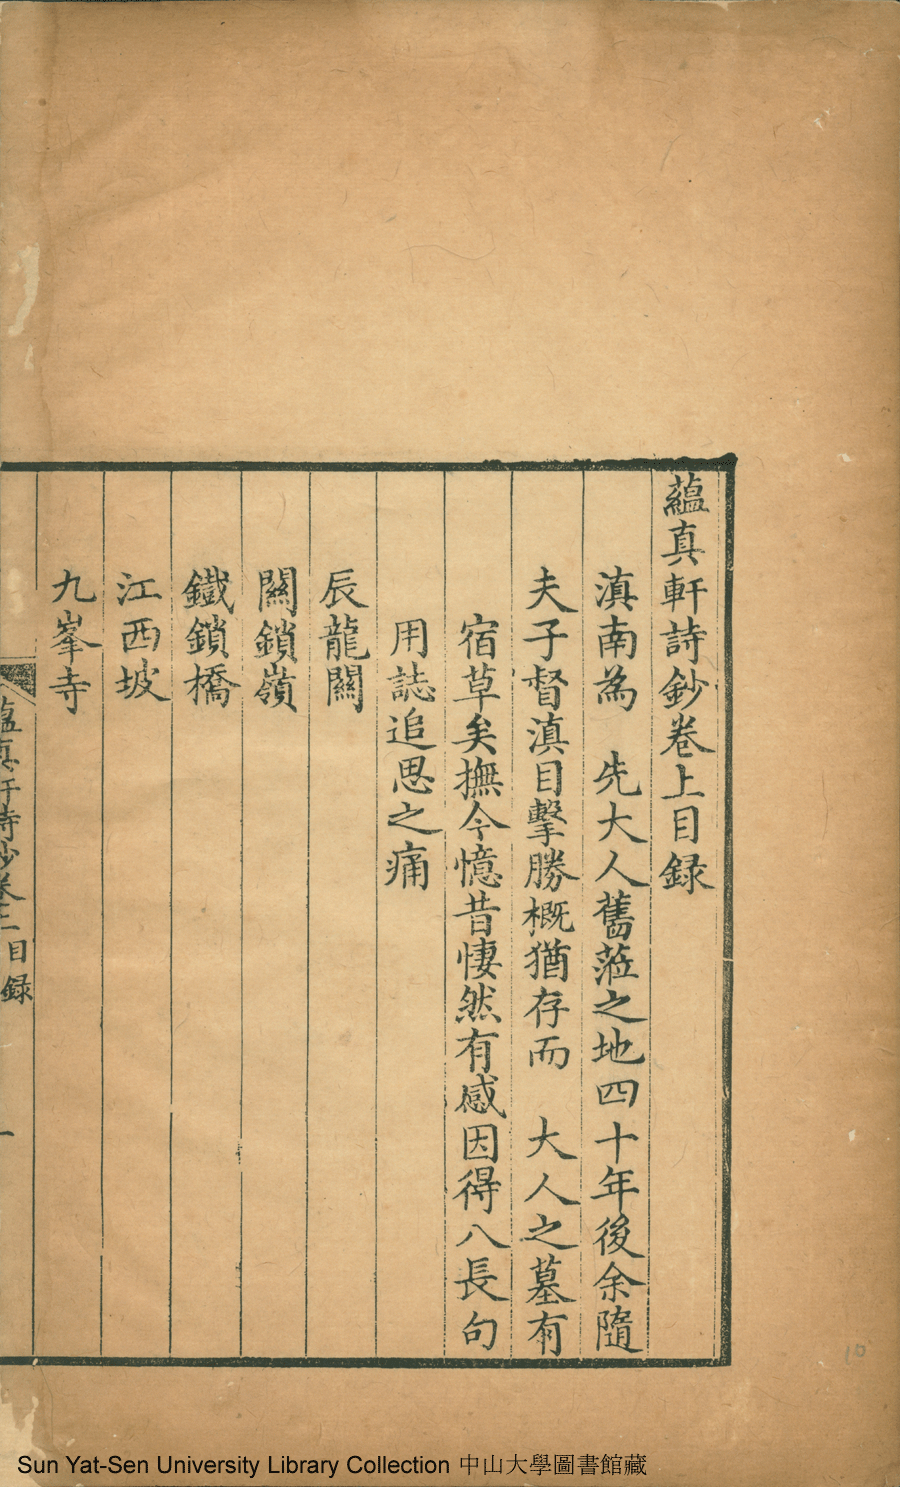 蘊真軒詩鈔卷上目録
滇南為　先大人舊蒞之地四十年後余隨
夫子督滇目擊勝概猶存而　大人之墓有
宿草矣撫今憶昔悽然有感因得八長句
用誌追思之痛
辰龍關
關鎖嶺
鐵鎖橋
江西坡
九峯寺
蘊真軒詩鈔卷上目録
一
10
Sun Yat-Sen University Library Collection 中山大學圖書館藏